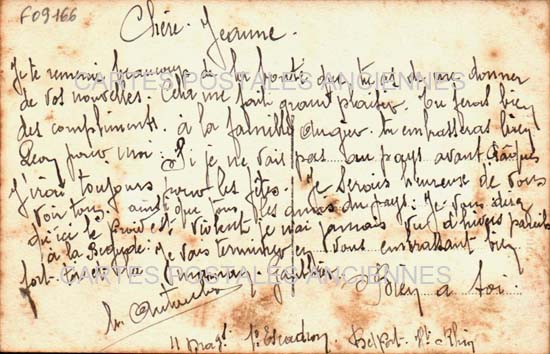 F09166
Chère Jeanne.
Je te remercie beaucoup de la bonté que tu as de me donner
de vos nouvelles. Cela me fait grand plaisir. Tu feras bien
des compliments à la famille tu embrasseras bien
Léon pour moi. Si je ne vais pas au pays avant Pâques
J'irai toujours pour les fêtes. Je serais heureuse de vous
voir tous ainsi que tous les amis du pays. Je vous dirai
qu'ici le froid est je n'ai jamais vu d'hivers pareils
à la Je vous en vous embrassant bien
fort.
Bien à toi.
11 Drag. 1er Escadron Belfort. Ht. Rhin
CARTES POSTALES ANCIENNES
CARTES POSTALES ANCIENNES